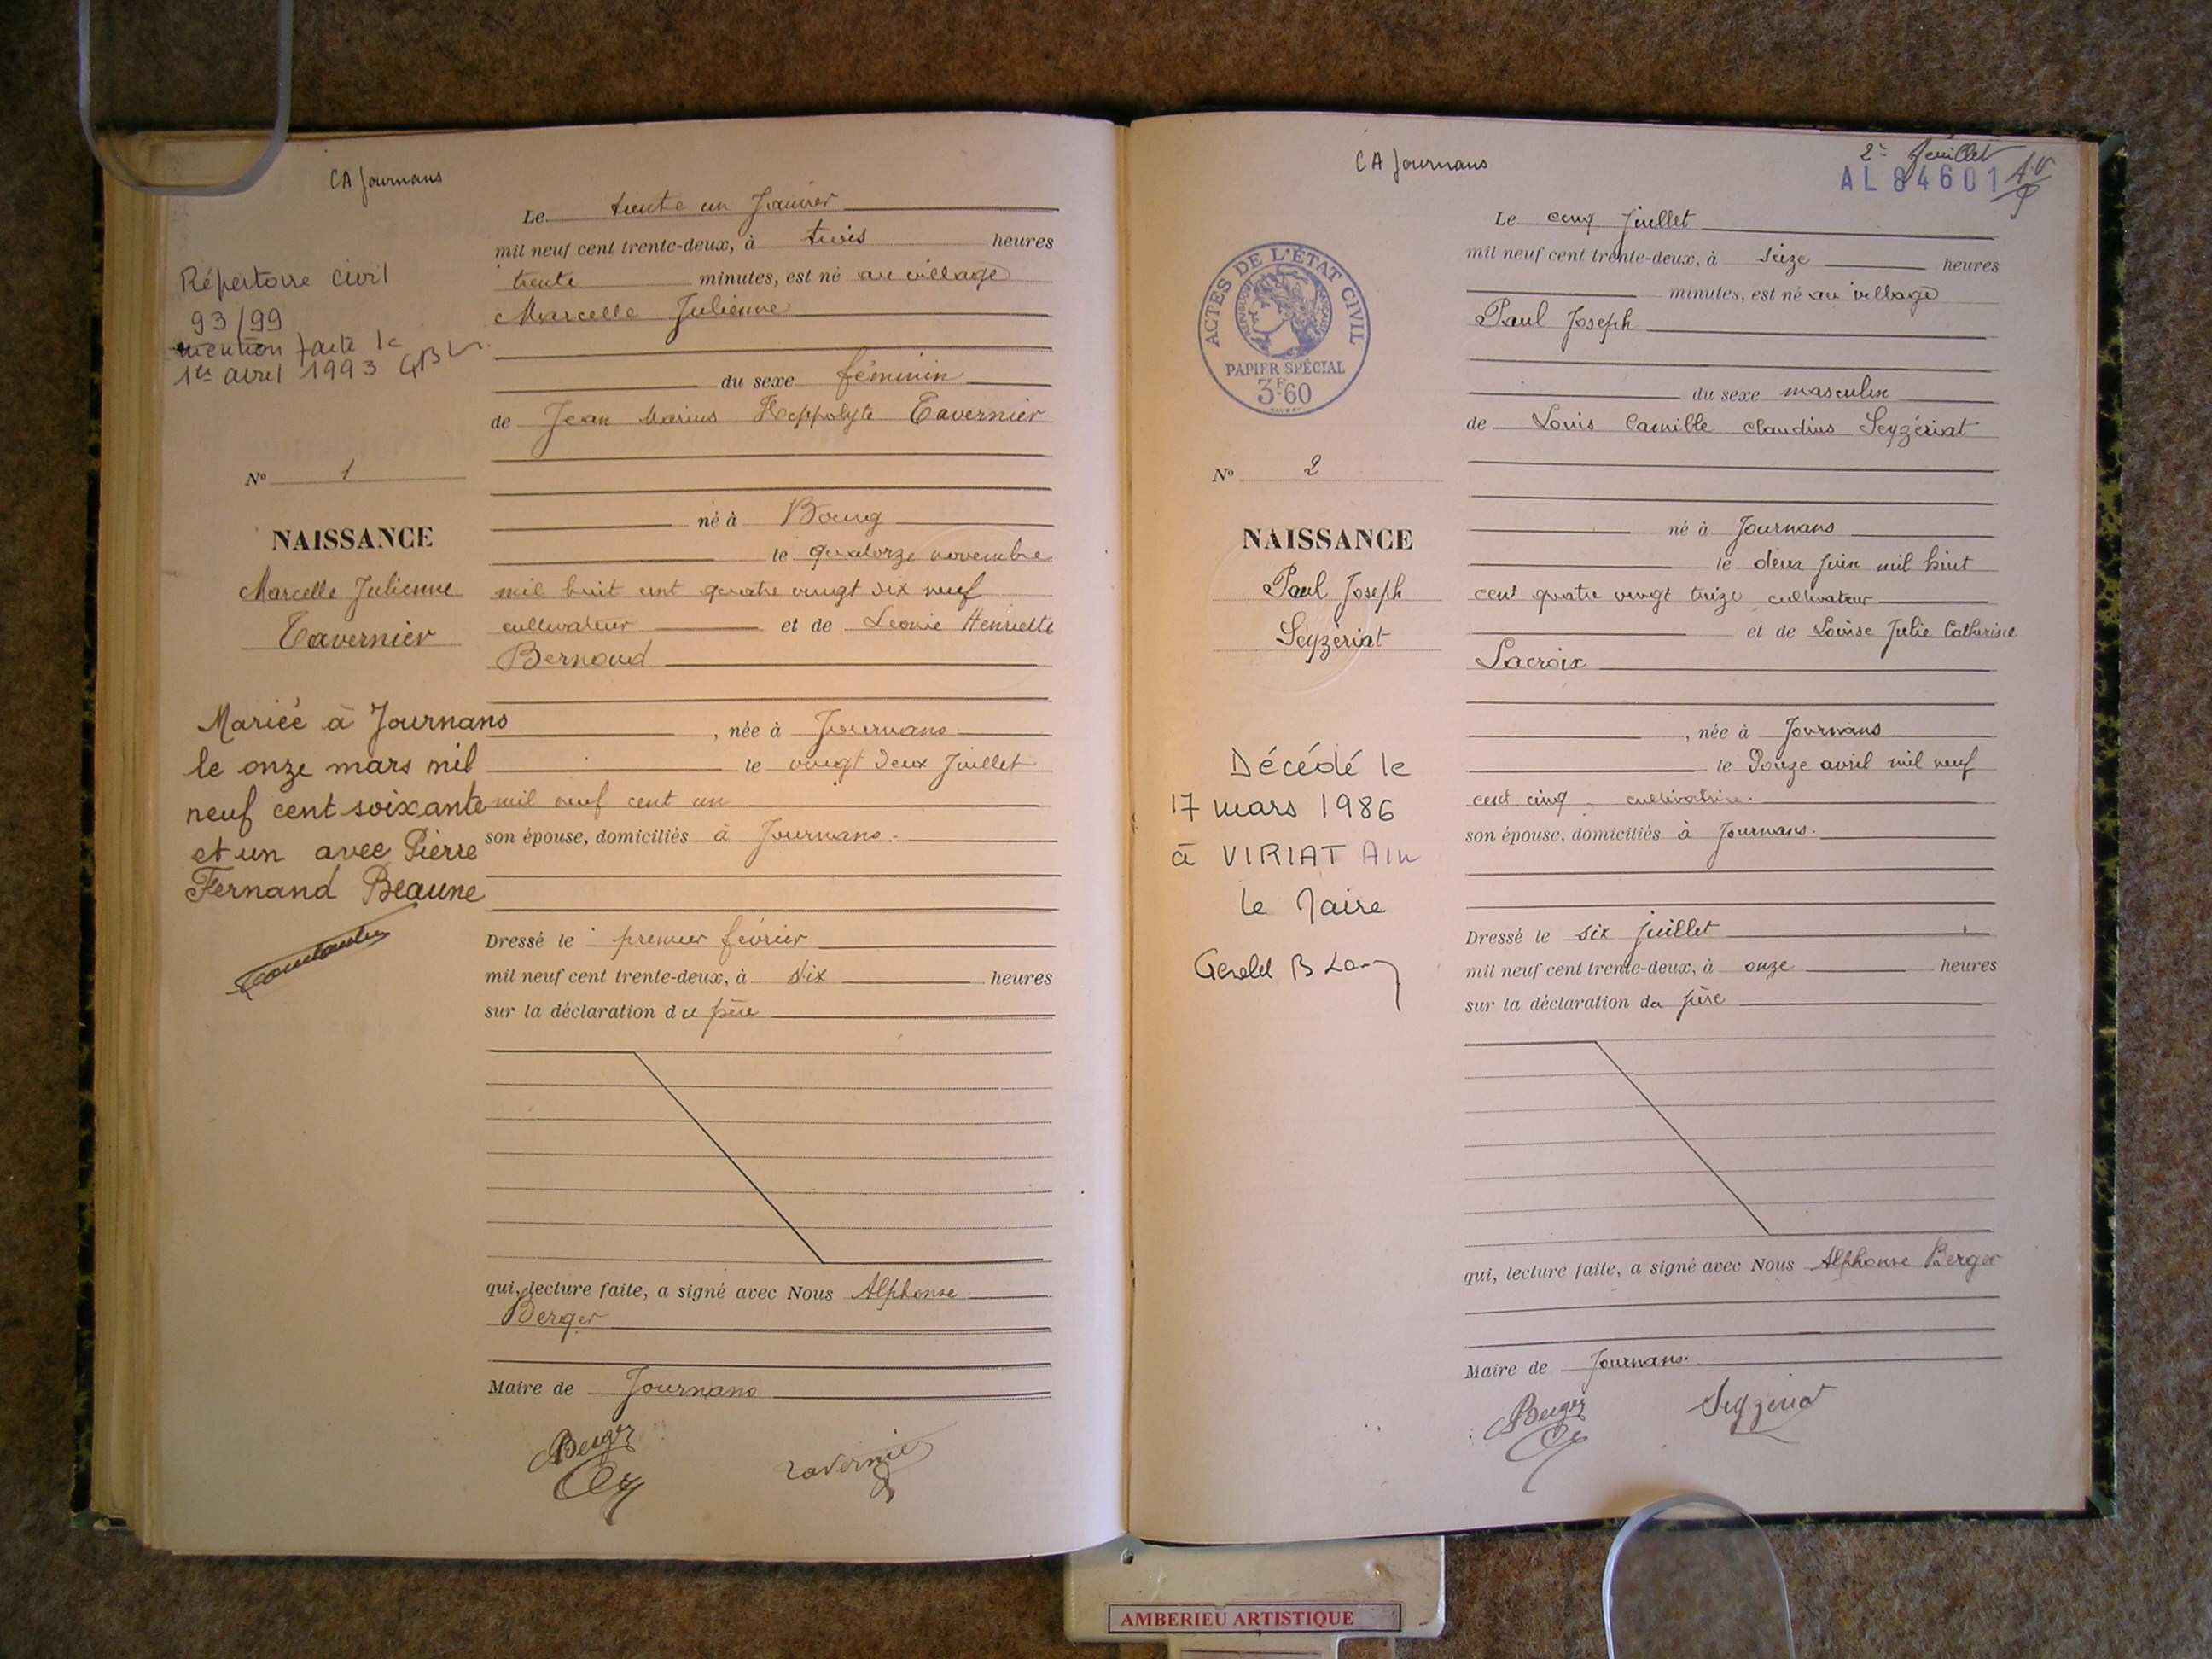 CA Journans
Répertoire civil
93/99
mention faite le
1er avril 1993
N° 1
NAISSANCE
Marcelle Julienne
Tavernier
Mariée à Journans
le onze mars mil
neuf cent soixante
et un avec Pierre
Fernand Beaune
Le trente un Janvier
mil neuf cent trente-deux, à trois heures
trente minutes, est né au village
Marcelle Julienne
du sexe féminin
de Jean Marius Hippolyte Tavernier
né à Bourg
le quatorze novembre
mil huit cent quatre vingt dix neuf
cultivateur et de Léonie Henriette
Bernoud
, née à Journans
le vingt deux Juillet
mil neuf cent un
son épouse, domiciliés à Journans.
Dressé le premier février
mil neuf cent trente-deux, à dix heures
sur la déclaration du père
qui, lecture faite, a signé avec Nous Alphonse
Berger
Maire de Journans
Berger
Tavernier
CA Journans
2e feuillet
AL 84601
ACTES DE L'ÉTAT CIVIL
RÉPUBLIQUE FRANÇAISE
PAPIER SPÉCIAL
3F60
N° 2
NAISSANCE
Paul Joseph
Seyzériat
Décédé le
17 mars 1986
à VIRIAT Ain
le Maire
Le cinq juillet
mil neuf cent trente-deux, à seize heures
minutes, est né au village
Paul Joseph
du sexe masculin
de Louis Camille Claudius Seyzériat
né à Journans
le deux Juin mil huit
cent quatre vingt treize cultivateur
et de Louise Julie Catherine
Lacroix
, née à Journans
le Douze avril mil neuf
cent cinq, cultivatrice.
son épouse, domiciliés à Journans.
Dressé le six juillet
mil neuf cent trente-deux, à onze heures
sur la déclaration du père
qui, lecture faite, a signé avec Nous Alphonse Berger
Maire de Journans.
Berger
Seyzériat
AMBERIEU ARTISTIQUE